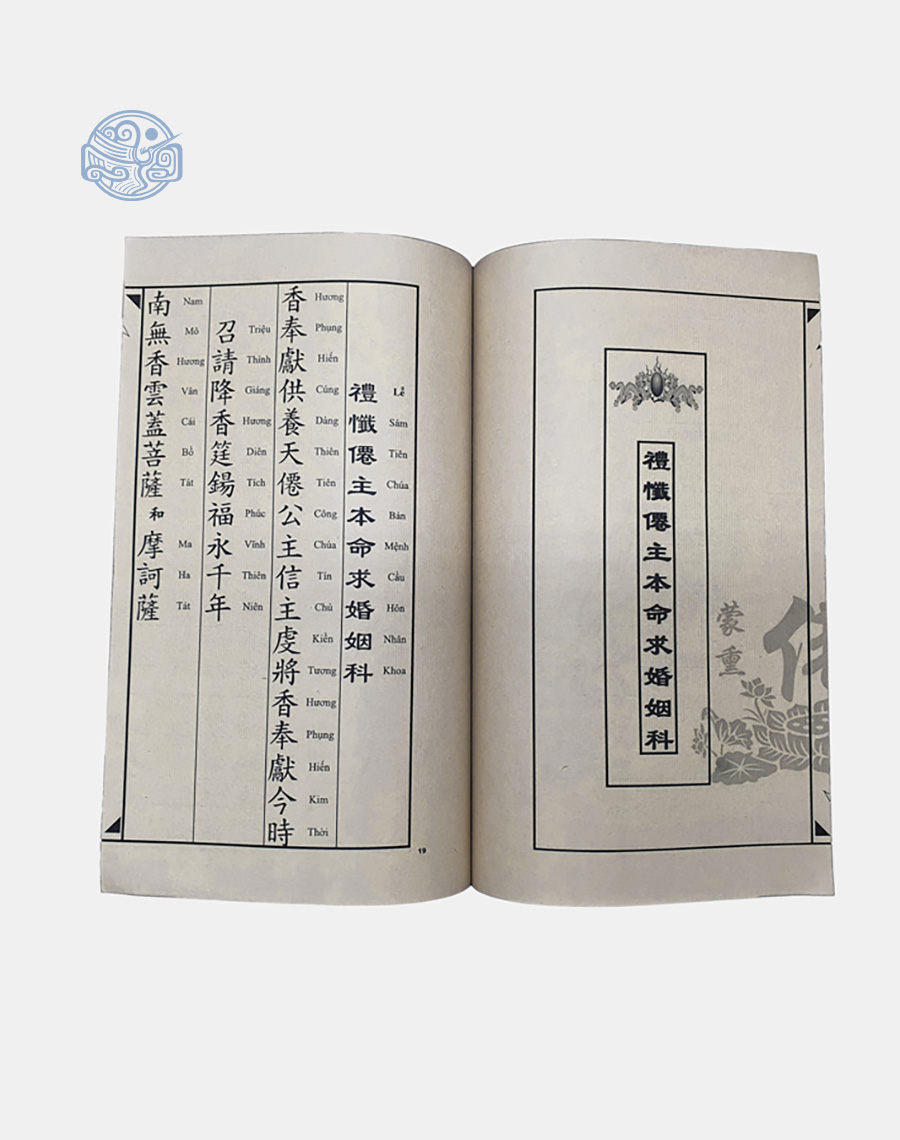 禮懺僊主本命求婚姻科
蒙
禮懺僊主本命求婚姻科
Lễ Sám Tiên Chúa Bản Mệnh Cầu Hôn Nhân Khoa
香奉獻供養天僊公主信主虔將香奉獻今時
Hương Phụng Hiến Cúng Dàng Thiên Tiên Công Chúa Tín Chủ Kiền Tương Hương Phụng Hiến Kim Thời
召請降香筵鍚福永千年
Triệu Thỉnh Giáng Hương Diên Tích Phúc Vĩnh Thiên Niên
南無香雲蓋菩薩和摩訶薩
Nam Mô Hương Vân Cái Bồ Tát Ma Ha Tát
19